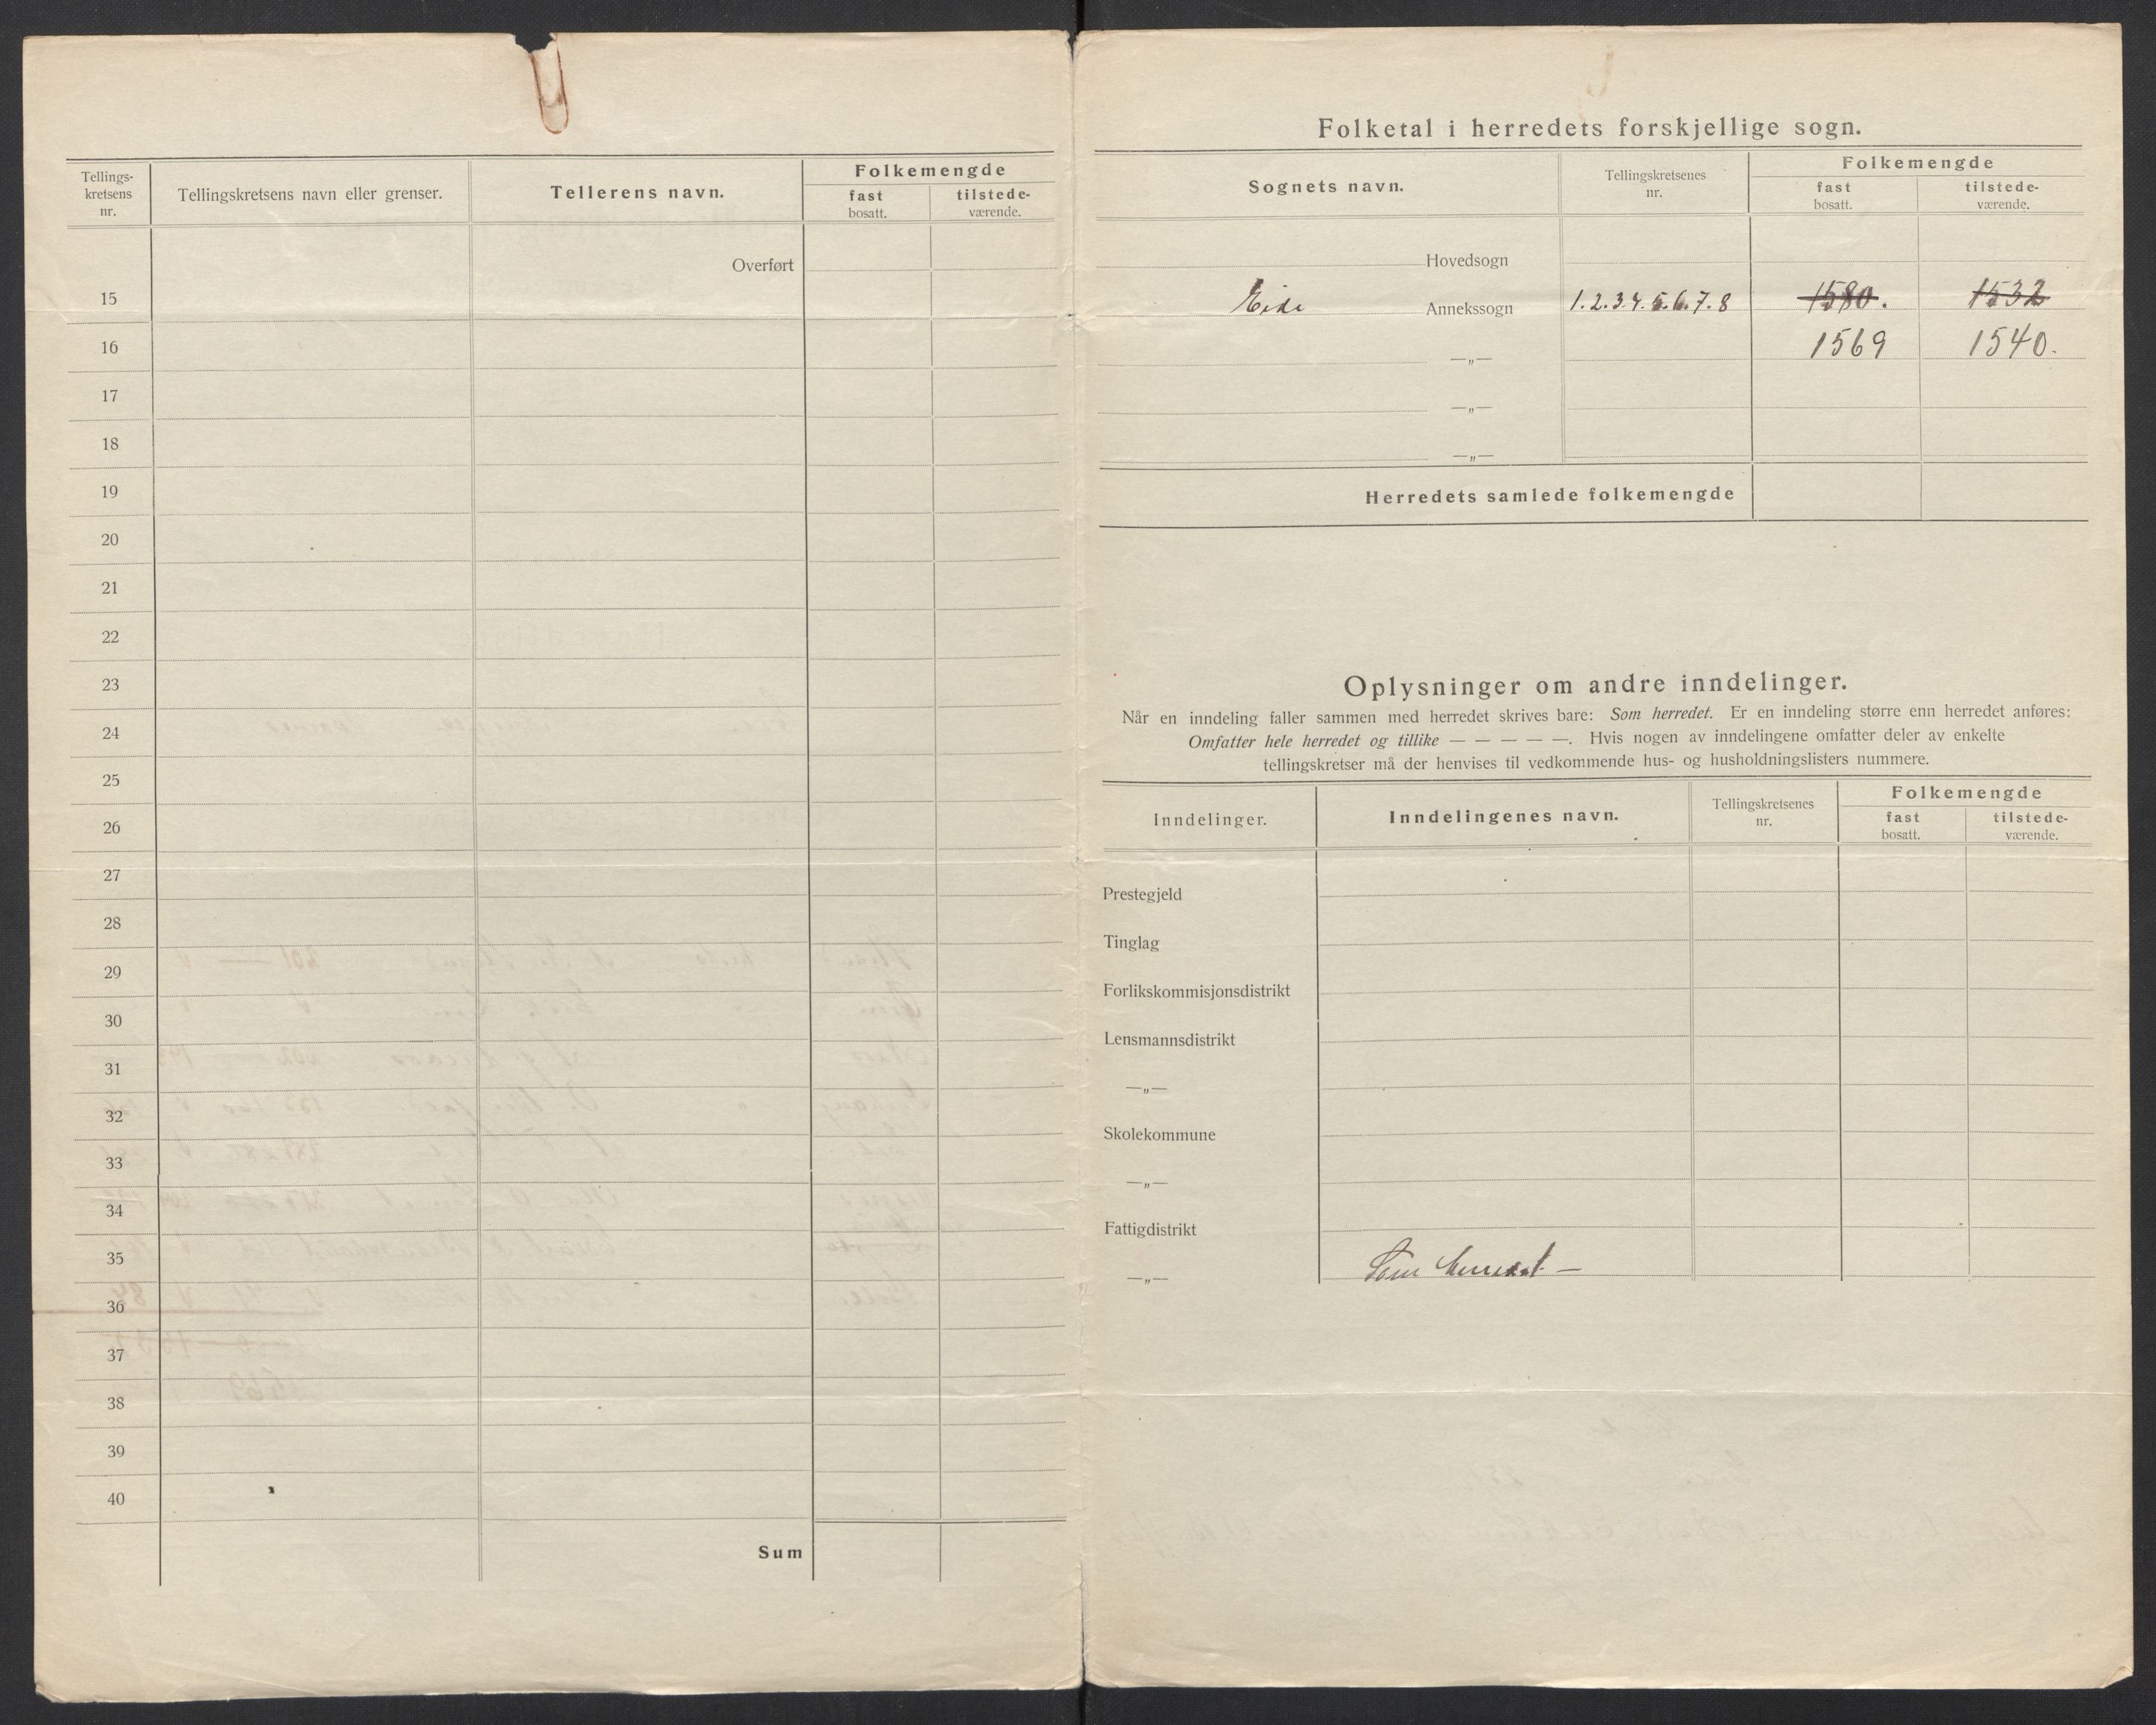 Tellings-
kretsens
nr.
Tellingskretsens navn eller grenser.
Tellerens navn.
Folkemengde
fast
bosatt.
tilstede-
værende.
Overført
15
16
17
18
19
20
21
22
23
24
25
26
27
28
29
30
31
32
33
34
35
36
37
38
39
40
Sum
Folketal i herredets forskjellige sogn.
Sognets navn.
Tellingskretsenes
nr.
Folkemengde
fast
bosatt.
tilstede-
værende.
Hovedsogn
Eide Annekssogn 1.2.3.4.5.6.7.8 1580. 1532
—„— 1569 1540.
—„—
—„—
Herredets samlede folkemengde
Oplysninger om andre inndelinger.
Når en inndeling faller sammen med herredet skrives bare: Som herredet. Er en inndeling større enn herredet anføres:
Omfatter hele herredet og tillike — — — — —. Hvis nogen av inndelingene omfatter deler av enkelte
tellingskretser må der henvises til vedkommende hus- og husholdningslisters nummere.
Inndelinger.
Inndelingenes navn.
Tellingskretsenes
nr.
Folkemengde
fast
bosatt.
tilstede-
værende.
Prestegjeld
Tinglag
Forlikskommisjonsdistrikt
Lensmannsdistrikt
—„—
Skolekommune
—„—
Fattigdistrikt
—„— Som herredet. —